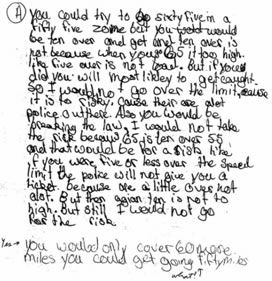 A you could try to go sixty five in a
fifty five zone but you would would
be ten over and get one ten over is
not because when your 65 it too high.
like five over is not bad. but if you
did you will most likely to get caught.
So I would not go over the limit, cause
it is to risky. cause their are alot
police out there. Also you would be
breaking the law. I would not take
the risk because 65 is ten over 55
and that would be for a risk like
if you were five or less over the speed
limit the police will not give you a
ticket. because are a little over not
alot. But then again ten is not to
high. but still I would not go
for the risk.
Yes → you would only cover 60 more
miles you could get going fifty miles
what??